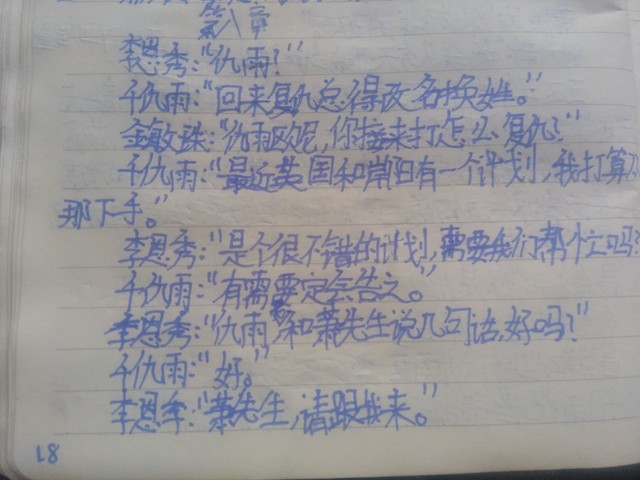 第八章
李恩秀:“仇雨?”
千仇雨:“回来复仇总得改名换姓。”
金敏珠:“仇雨欧呢,你接来打怎么复仇?”
千仇雨:“最近英国和常阳有一个计划,我打算
那下手。”
李恩秀:“是个很不错的计划,需要我们帮忙吗?
千仇雨:“有需要定会告之。”
李恩秀:“仇雨,我和萧先生说几句话,好吗?”
千仇雨:“好。”
李恩季:“萧先生,请跟我来。”
18